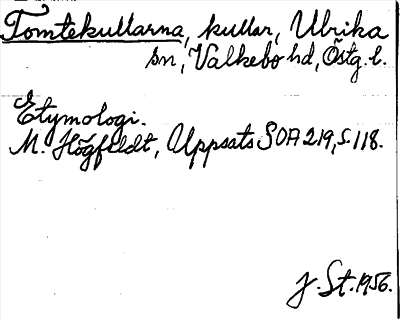 Tomtekullarna, kullar, Ulrika
sn, Valkebo hd, Östg. l.
Etymologi.
M. Högfeldt, Uppsats SOA 219, s. 118.
J. St. 1956.